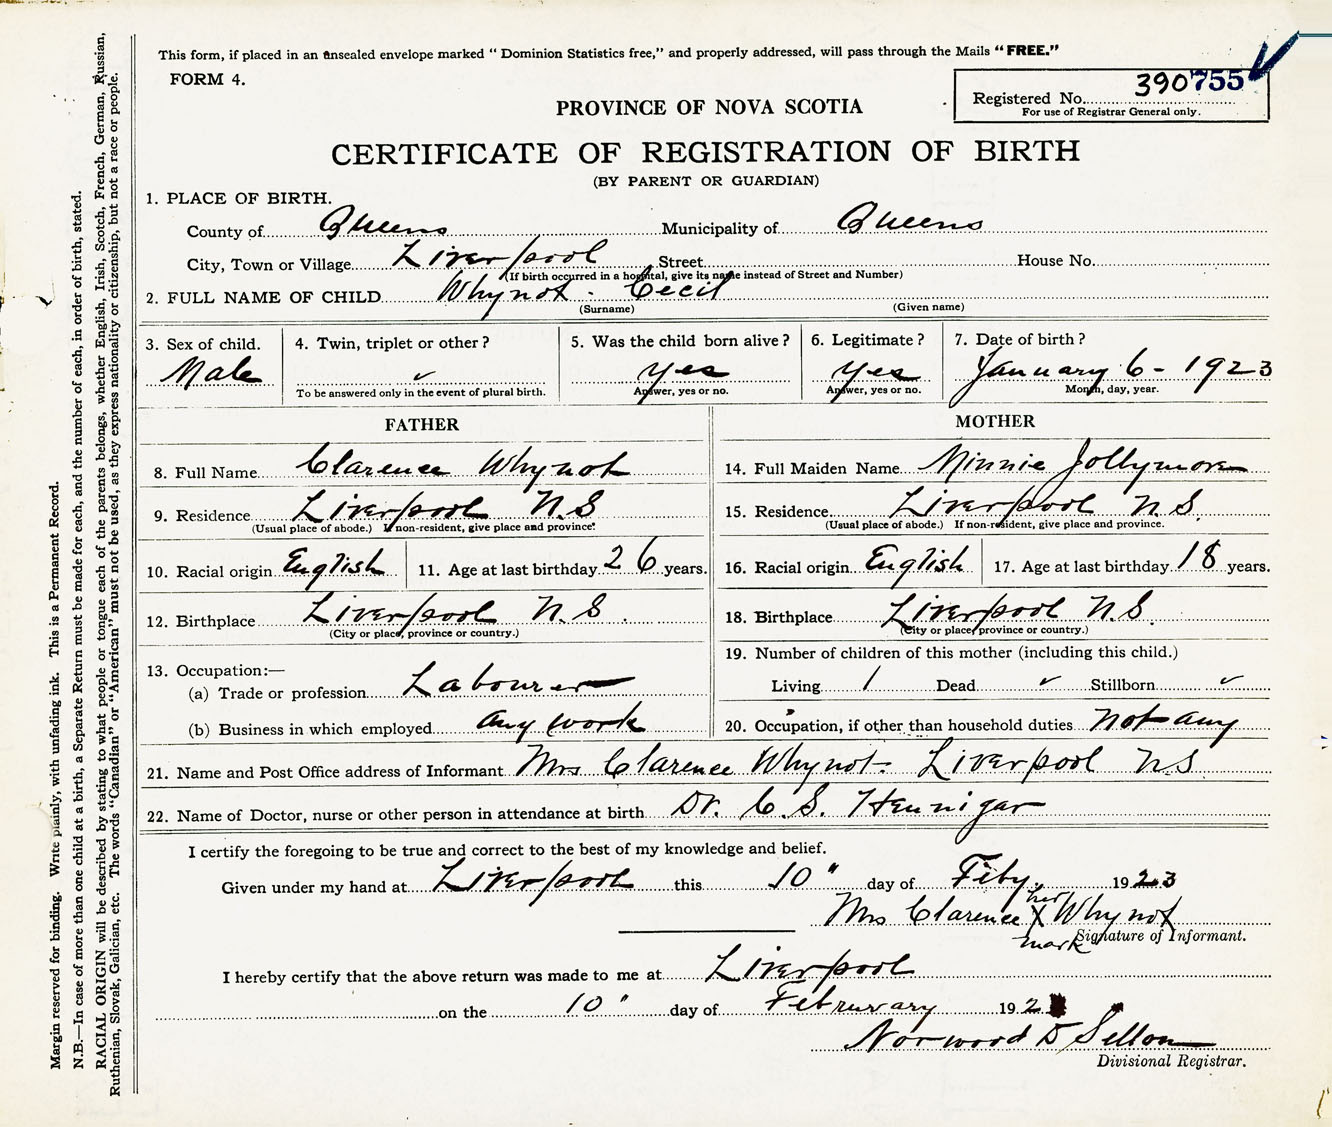 This form, if placed in an unsealed envelope marked "Dominion Statistics free," and properly addressed, will pass through the Mails "FREE."
FORM 4.
Registered No. 390755
For use of Registrar General only.
PROVINCE OF NOVA SCOTIA
CERTIFICATE OF REGISTRATION OF BIRTH
(BY PARENT OR GUARDIAN)
1. PLACE OF BIRTH.
County of Queens Municipality of Queens
City, Town or Village Liverpool Street House No.
(If birth occurred in a hospital, give its name instead of Street and Number)
2. FULL NAME OF CHILD Whynot - Cecil
(Surname) (Given name)
3. Sex of child. 4. Twin, triplet or other? 5. Was the child born alive? 6. Legitimate? 7. Date of birth?
Male ✓ yes yes January 6 - 1923
To be answered only in the event of plural birth. Answer, yes or no. Answer, yes or no. Month, day, year.
FATHER MOTHER
8. Full Name Clarence Whynot 14. Full Maiden Name Minnie Jollymore
9. Residence Liverpool N.S 15. Residence Liverpool N.S.
(Usual place of abode.) If non-resident, give place and province. (Usual place of abode.) If non-resident, give place and province.
10. Racial origin English 11. Age at last birthday 26 years. 16. Racial origin English 17. Age at last birthday 18 years.
12. Birthplace Liverpool N.S. 18. Birthplace Liverpool N.S.
(City or place, province or country.) (City or place, province or country.)
13. Occupation:— 19. Number of children of this mother (including this child.)
(a) Trade or profession Labourer Living 1 Dead ✓ Stillborn ✓
(b) Business in which employed any work 20. Occupation, if other than household duties not any
21. Name and Post Office address of Informant Mrs Clarence Whynot - Liverpool N.S
22. Name of Doctor, nurse or other person in attendance at birth Dr. C. S. Hennigar
I certify the foregoing to be true and correct to the best of my knowledge and belief.
Given under my hand at Liverpool this 10" day of Feby. 1923
her
Mrs Clarence X Whynot
mark
Signature of Informant.
I hereby certify that the above return was made to me at Liverpool
on the 10" day of February 192
Norwood D Sellon
Divisional Registrar.
Margin reserved for binding. Write plainly, with unfading ink. This is a Permanent Record.
N.B.—In case of more than one child at a birth, a Separate Return must be made for each, and the number of each, in order of birth, stated.
RACIAL ORIGIN will be described by stating to what people or tongue each of the parents belongs, whether English, Irish, Scotch, French, German, Russian,
Ruthenian, Slovak, Galician, etc. The words "Canadian" or "American" must not be used, as they express nationality or citizenship, but not a race or people.